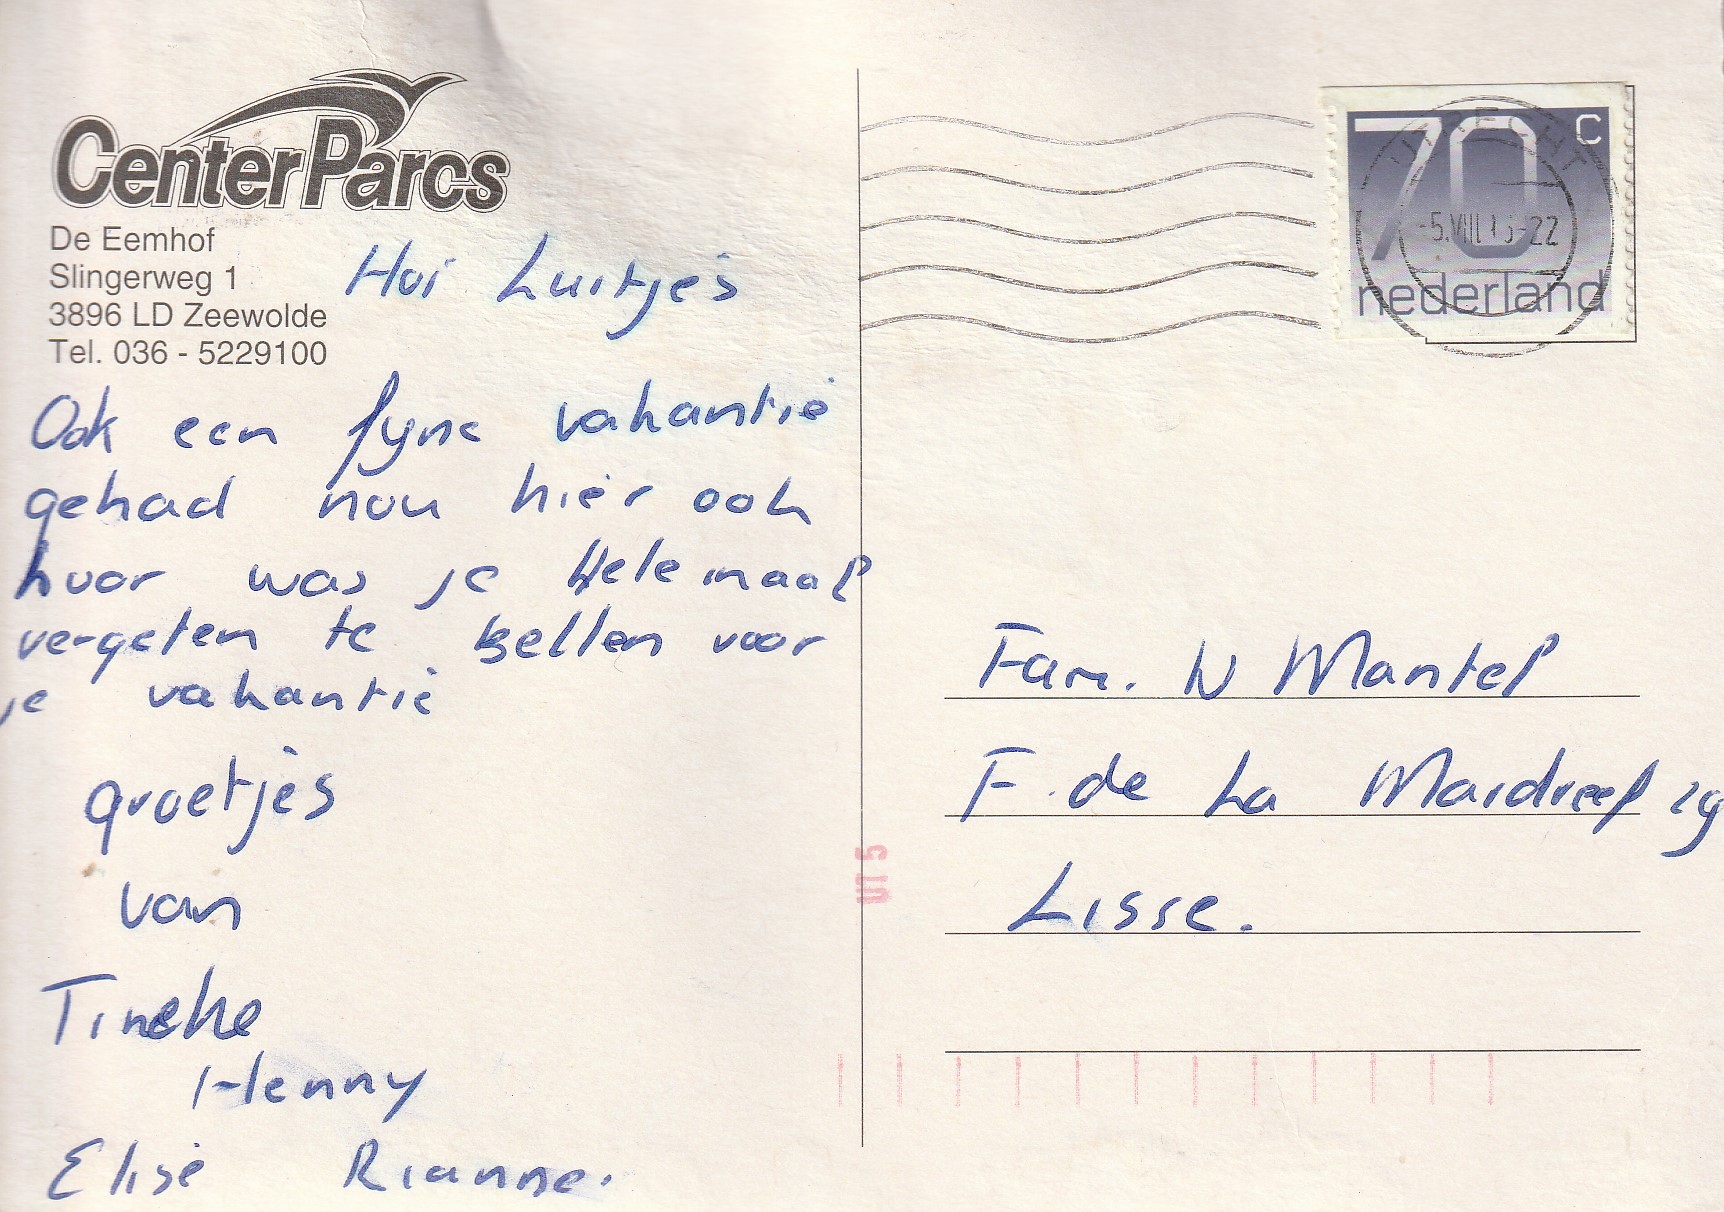 CenterParcs
De Eemhof
Slingerweg 1
3896 LD Zeewolde
Tel. 036 - 5229100
Hoi Luitjes
Ook een fyne vakantie
gehad nou hier ook
hoor was je Helemaal
vergeten te bellen voor
je vakantie
groetjes
van
Tineke
Henny
Elise Rianne.
70 c
nederland
UTRECHT
-5.VIII -22
Fam. N Mantel
F. de La Mardreef 29
Lisse.
UT 5